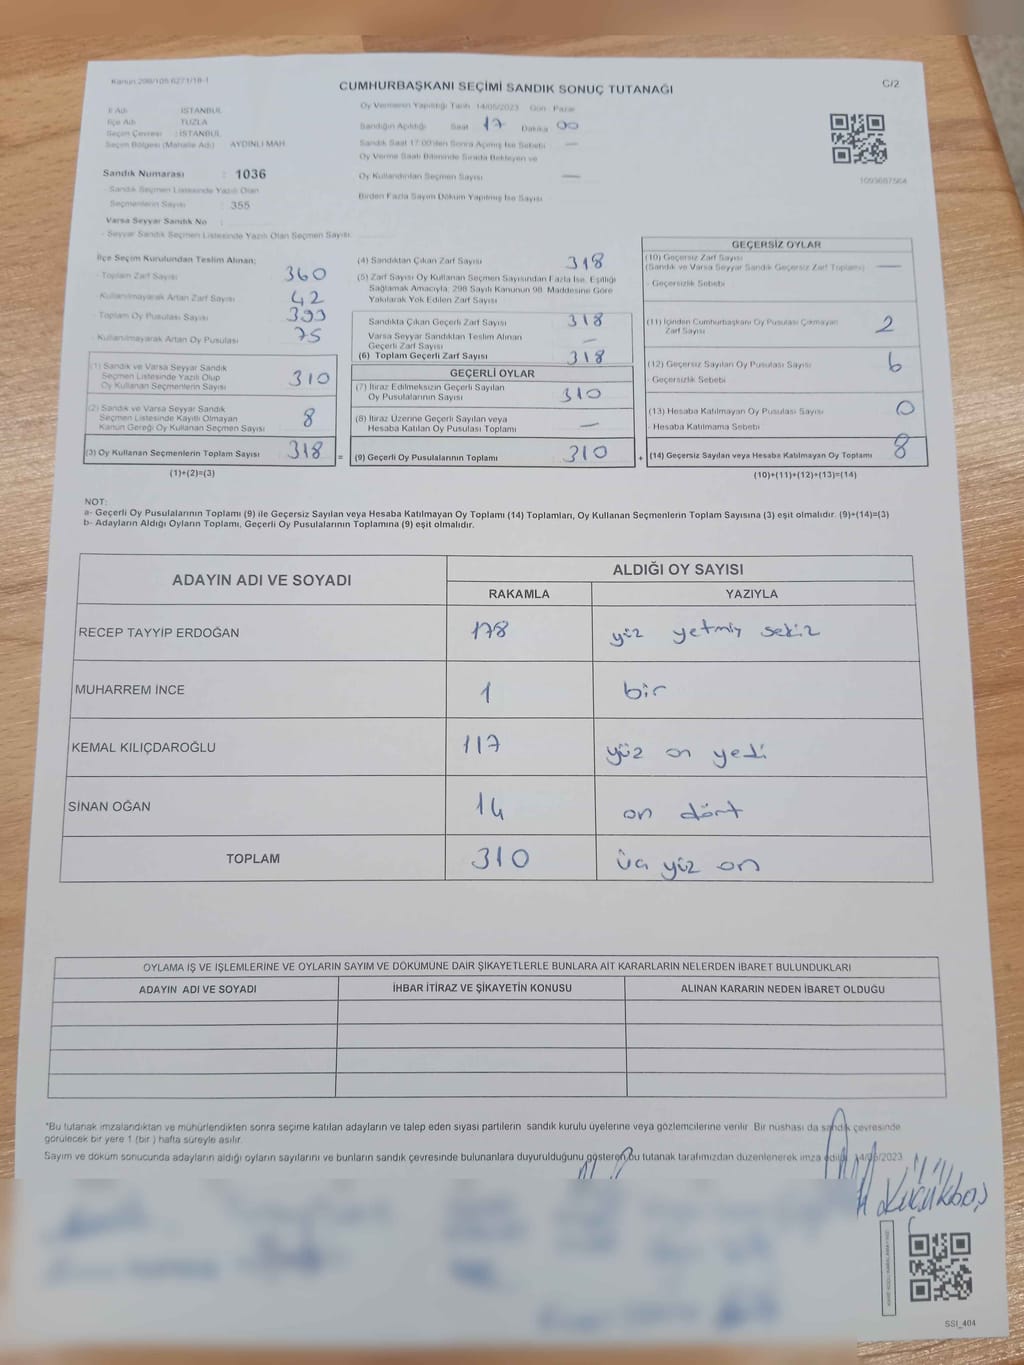 Kanun 298/105 6271/18-1
CUMHURBAŞKANI SEÇİMİ SANDIK SONUÇ TUTANAĞI
C/2
İl Adı : İSTANBUL
İlçe Adı : TUZLA
Seçim Çevresi : İSTANBUL
Seçim Bölgesi (Mahalle Adı) : AYDINLI MAH.
Sandık Numarası : 1036
- Sandık Seçmen Listesinde Yazılı Olan
Seçmenlerin Sayısı : 355
Varsa Seyyar Sandık No :
- Seyyar Sandık Seçmen Listesinde Yazılı Olan Seçmen Sayısı:
Oy Vermenin Yapıldığı Tarih 14/05/2023 Gün Pazar
Sandığın Açıldığı Saat 17 Dakika 00
Sandık Saat 17:00'den Sonra Açılmış İse Sebebi —
Oy Verme Saati Bitiminde Sırada Bekleyen ve
Oy Kullandırılan Seçmen Sayısı —
Birden Fazla Sayım Döküm Yapılmış İse Sayısı
1093687564
İlçe Seçim Kurulundan Teslim Alınan;
- Toplam Zarf Sayısı 360
- Kullanılmayarak Artan Zarf Sayısı 42
- Toplam Oy Pusulası Sayısı 393
- Kullanılmayarak Artan Oy Pusulası 75
(1) Sandık ve Varsa Seyyar Sandık
Seçmen Listesinde Yazılı Olup
Oy Kullanan Seçmenlerin Sayısı 310
(2) Sandık ve Varsa Seyyar Sandık
Seçmen Listesinde Kayıtlı Olmayan
Kanun Gereği Oy Kullanan Seçmen Sayısı 8
(3) Oy Kullanan Seçmenlerin Toplam Sayısı 318 =
(1)+(2)=(3)
(4) Sandıktan Çıkan Zarf Sayısı 318
(5) Zarf Sayısı Oy Kullanan Seçmen Sayısından Fazla İse, Eşitliği
Sağlamak Amacıyla, 298 Sayılı Kanunun 98. Maddesine Göre
Yakılarak Yok Edilen Zarf Sayısı
Sandıkta Çıkan Geçerli Zarf Sayısı 318
Varsa Seyyar Sandıktan Teslim Alınan
Geçerli Zarf Sayısı —
(6) Toplam Geçerli Zarf Sayısı 318
GEÇERLİ OYLAR
(7) İtiraz Edilmeksizin Geçerli Sayılan
Oy Pusulalarının Sayısı 310
(8) İtiraz Üzerine Geçerli Sayılan veya
Hesaba Katılan Oy Pusulası Toplamı —
(9) Geçerli Oy Pusulalarının Toplamı 310 +
GEÇERSİZ OYLAR
(10) Geçersiz Zarf Sayısı
(Sandık ve Varsa Seyyar Sandık Geçersiz Zarf Toplamı) —
- Geçersizlik Sebebi
(11) İçinden Cumhurbaşkanı Oy Pusulası Çıkmayan
Zarf Sayısı 2
(12) Geçersiz Sayılan Oy Pusulası Sayısı 6
- Geçersizlik Sebebi
(13) Hesaba Katılmayan Oy Pusulası Sayısı 0
- Hesaba Katılmama Sebebi
(14) Geçersiz Sayılan veya Hesaba Katılmayan Oy Toplamı 8
(10)+(11)+(12)+(13)=(14)
NOT:
a- Geçerli Oy Pusulalarının Toplamı (9) ile Geçersiz Sayılan veya Hesaba Katılmayan Oy Toplamı (14) Toplamları, Oy Kullanan Seçmenlerin Toplam Sayısına (3) eşit olmalıdır. (9)+(14)=(3)
b- Adayların Aldığı Oyların Toplamı, Geçerli Oy Pusulalarının Toplamına (9) eşit olmalıdır.
ADAYIN ADI VE SOYADI
ALDIĞI OY SAYISI
RAKAMLA YAZIYLA
RECEP TAYYİP ERDOĞAN 178 yüz yetmiş sekiz
MUHARREM İNCE 1 bir
KEMAL KILIÇDAROĞLU 117 yüz on yedi
SİNAN OĞAN 14 on dört
TOPLAM 310 üç yüz on
OYLAMA İŞ VE İŞLEMLERİNE VE OYLARIN SAYIM VE DÖKÜMÜNE DAİR ŞİKAYETLERLE BUNLARA AİT KARARLARIN NELERDEN İBARET BULUNDUKLARI
ADAYIN ADI VE SOYADI İHBAR İTİRAZ VE ŞİKAYETİN KONUSU ALINAN KARARIN NEDEN İBARET OLDUĞU
*Bu tutanak imzalandıktan ve mühürlendikten sonra seçime katılan adayların ve talep eden siyasi partilerin sandık kurulu üyelerine veya gözlemcilerine verilir. Bir nüshası da sandık çevresinde
görülecek bir yere 1 (bir ) hafta süreyle asılır.
Sayım ve döküm sonucunda adayların aldığı oyların sayılarını ve bunların sandık çevresinde bulunanlara duyurulduğunu gösteren bu tutanak tarafımızdan düzenlenerek imza edildi. 14/05/2023
Küçükbaş
SSI_404